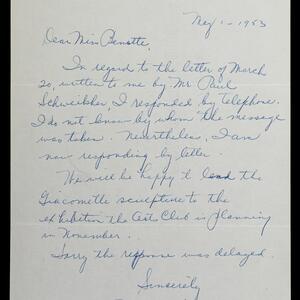 May 1 - 1953
Dear Miss Benette,
In regard to the letter of March
20, written to me by Mr Paul
Schweikher, I responded by telephone.
I do not know by whom the message
was taken. Nevertheless, I am
now responding by letter.
We will be happy to lend the
Giacomette sculpture to the
exhibition the Arts Club is planning
in November.
Sorry the response was delayed.
Sincerely